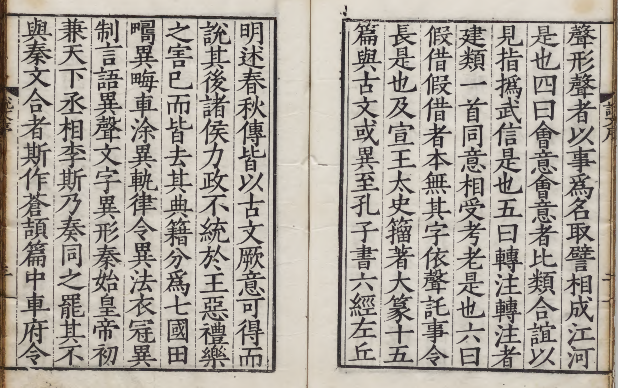 聲形聲者以事爲名取譬相成江河
是也四曰會意會意者比類合誼以
見指撝武信是也五曰轉注轉注者
建類一首同意相受考老是也六曰
假借假借者本無其字依聲託事令
長是也及宣王太史籀著大篆十五
篇與古文或異至孔子書六經左丘
明述春秋傳皆以古文厥意可得而
說其後諸侯力政不統於王惡禮樂
之害已而皆去其典籍分爲七國田
疇異畮車涂異軌律令異法衣冠異
制言語異聲文字異形秦始皇帝初
兼天下丞相李斯乃奏同之罷其不
與秦文合者斯作蒼頡篇中車府令